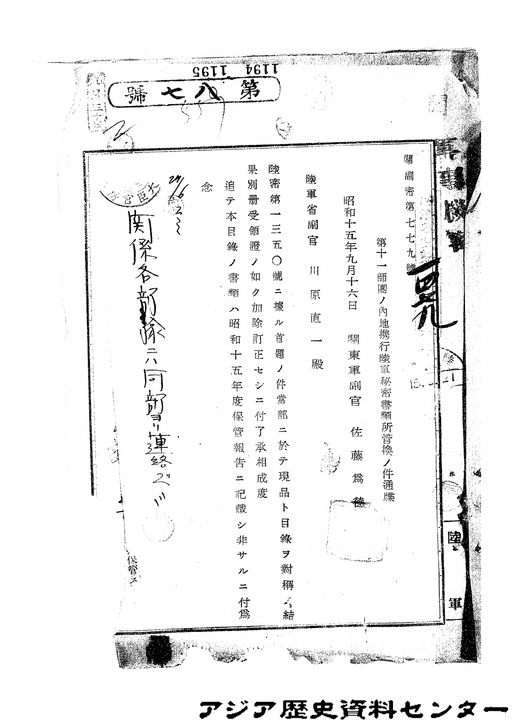 1194 1195
第八七號
軍事機密
關副密第七七九號
第十一師團ノ內地携行陸軍秘密書類所管換ノ件通牒
昭和十五年九月十六日
關東軍副官 佐藤爲德
陸軍省副官 川原直一殿
陸密第一三五〇號ニ據ル首題ノ件當部ニ於テ現品ト目錄ヲ對稱シ結
果別册受領證ノ如ク加除訂正セシニ付了承相成度
追テ本目錄ノ書類ハ昭和十五年度保管報告ニ記載シ非サルニ付爲
念
関係各部隊ニハ同部ヨリ連絡ズミ
陸軍
アジア歴史資料センター